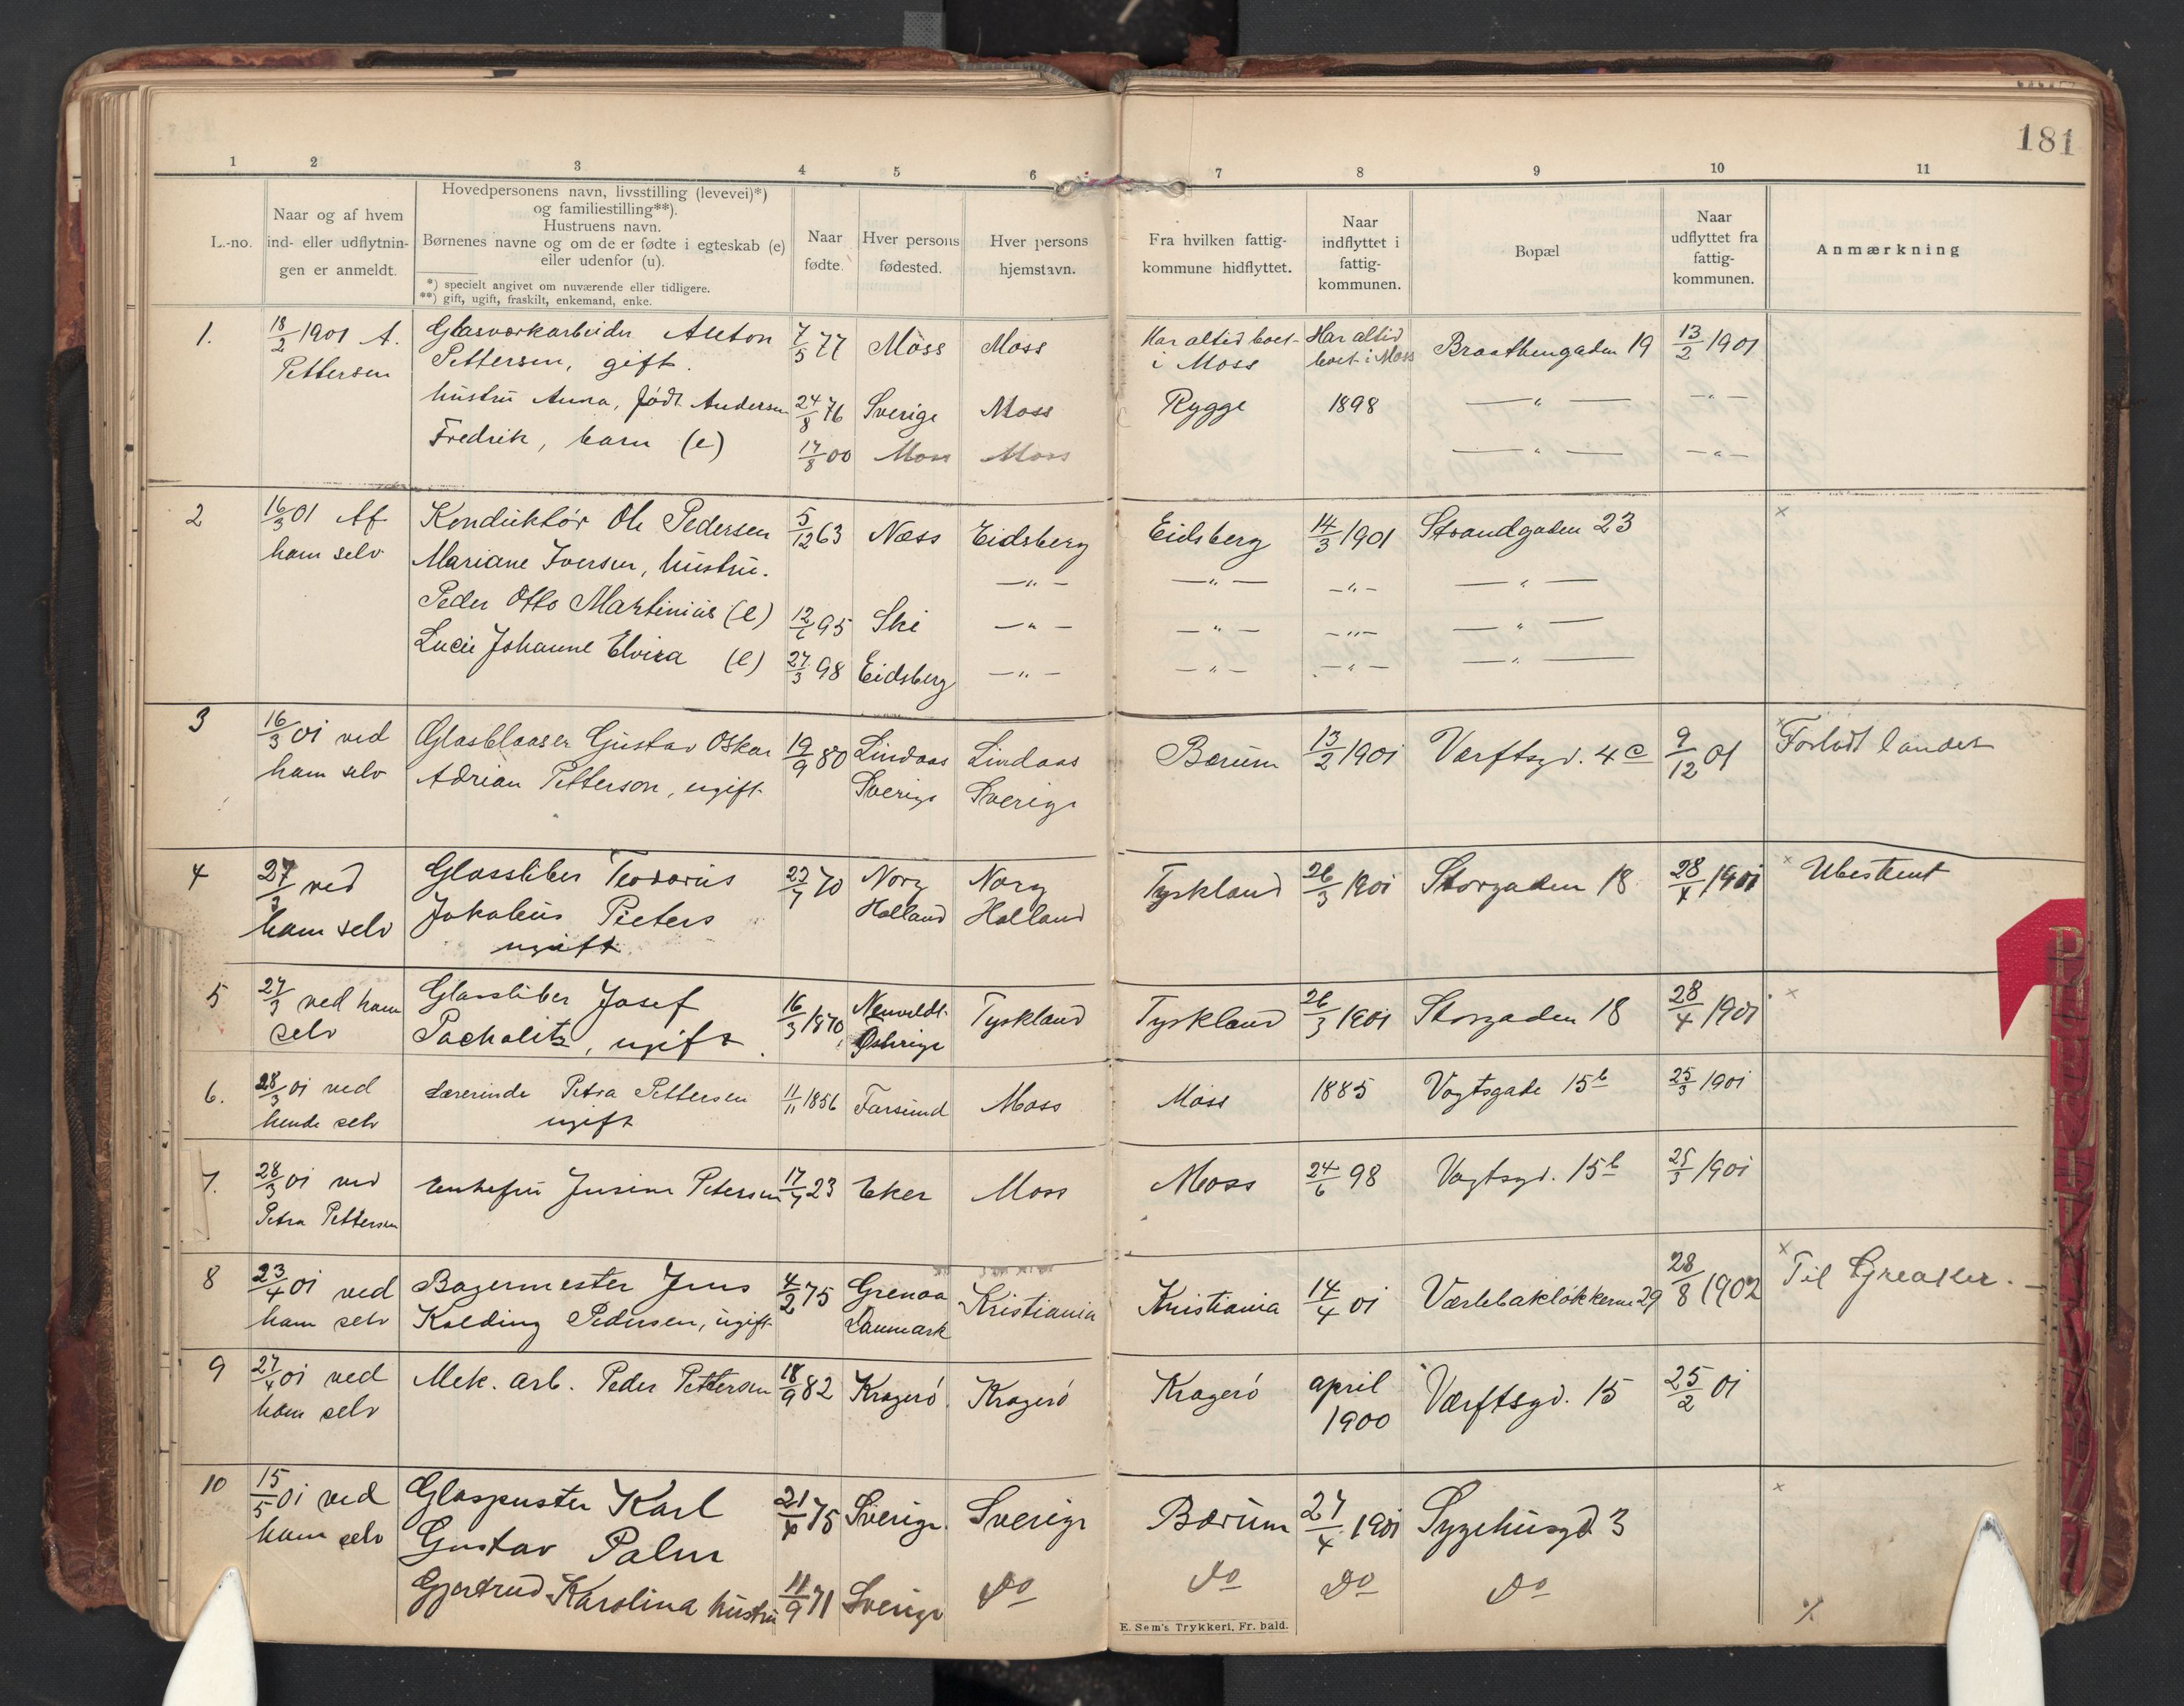 181
1 2 3 4 5 6 7 8 9 10 11
L.-no.
Naar og af hvem
ind- eller udflytnin-
gen er anmeldt.
Hovedpersonens navn, livsstilling (levevei)*)
og familiestilling**).
Hustruens navn.
Børnenes navne og om de er fødte i egteskab (e)
eller udenfor (u).
*) specielt angivet om nuværende eller tidligere.
**) gift, ugift, fraskilt, enkemand, enke.
Naar
fødte.
Hver persons
fødested.
Hver persons
hjemstavn.
Fra hvilken fattig-
kommune hidflyttet.
Naar
indflyttet i
fattig-
kommunen.
Bopæl
Naar
udflyttet fra
fattig-
kommunen.
Anmærkning
1. 18/2 1901 A. Glasværkarbeider Anton 7/5 77 Moss Moss Har altid boet Har altid Braathengaden 19 13/2 1901
Pettersen Pettersen, gift. i Moss boet i Moss
hustru Anna, født Andersen 24/8 76 Sverige Moss Rygge 1898 — " — — " —
Fredrik, barn (e) 17/8 00 Moss Moss — " — — " —
2 16/3 01 Af Konduktør Ole Pedersen 5/12 63 Næss Eidsberg Eidsberg 14/3 1901 Strandgaden 23 x
ham selv Mariane Iversen, hustru. — " — — " — — " — — " —
Peder Otto Martinius (e) 12/6 95 Ski — " — — " — — " — — " —
Lucie Johanne Elvira (e) 27/3 98 Eidsberg — " — — " — — " — — " —
3 16/3 01 ved Glasblaaser Gustav Oskar 19/9 80 Lindaas Lindaas Bærum 13/2 1901 Værftsgd. 4 c 9/12 01 x Forladt landet
ham selv Adrian Petterson, ugift Sverige Sverige
4 27/3 ved Glassliber Teodorus 70 Norg Norg Tyskland 26/3 1901 Storgaden 18 28/4 1901 x Ubestemt
ham selv Jakobus Pieters Holland Holland
ugift.
5 27/3 ved ham Glassliber Josef 16/3 1870 Tyskland Tyskland 26/3 1901 Storgaden 18 28/4 1901 x
selv Pacholitz, ugift. Østerige
6. 28/3 01 ved Lærerinde Petra Pettersen 11/11 1856 Farsund Moss Moss 1885 Vogtsgade 15 b 25/3 1901
hende selv ugift
7. 28/3 01 ved Enkefru Petersen 23 Eker Moss Moss 24/6 98 Vogtsgd. 15 b 25/3 1901
Petra Pettersen
8 23/4 01 ved Bagermester Jens 4/2 75 Grenaa Kristiania Kristiania 14/4 01 Værlebakløkkerne 29 28/8 1902 x Til Greaker.
ham selv Kolding Pedersen, ugift Danmark
9 27/4 01 ved Mek. arb. Peder Pettersen 18/9 82 Kragerø Kragerø Kragerø april Værftsgd. 15 25/2 01
ham selv 1900
10 15/5 01 ved Glaspuster Karl 21/4 75 Sverige Sverige Bærum 27/4 1901 Sygehusgd 3 x
ham selv Gustav Palm
Gjertrud Karolina hustru 11/9 71 Sverige do do do do
E. Sem's Trykkeri, Fr. hald.